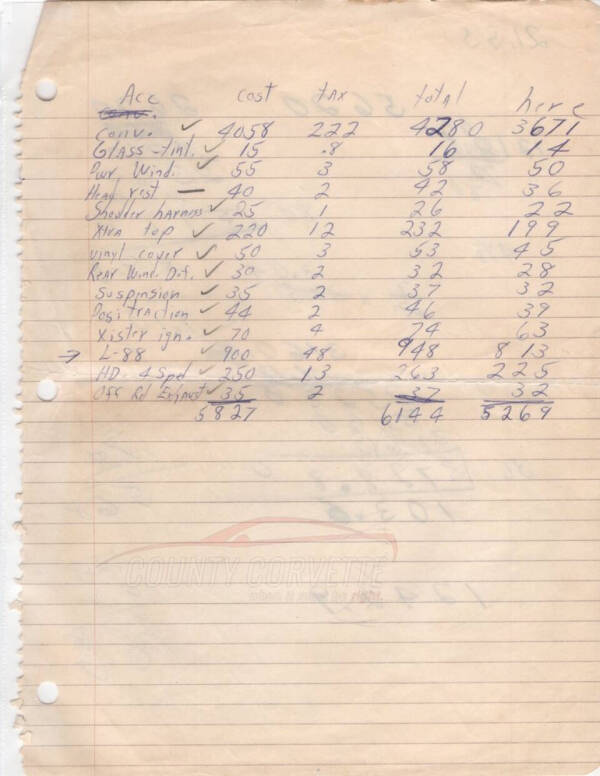 Acc cost tax total here
Conv.
Conv. ✓ 4058 222 4280 3671
Glass-tint. ✓ 15 .8 16 14
Pwr Wind. ✓ 55 3 58 50
Head rest — 40 2 42 36
Shoulder harness ✓ 25 1 26 22
Xtra top ✓ 220 12 232 199
vinyl cover ✓ 50 3 53 45
Rear Wind. Def. ✓ 30 2 32 28
Suspinsion ✓ 35 2 37 32
Positraction ✓ 44 2 46 39
Xister ign. ✓ 70 4 74 63
→ L-88 ✓ 900 48 948 813
HD. 4 Spd ✓ 250 13 263 225
Off Rd Exhaust ✓ 35 2 37 32
5827 6144 5269
COUNTY CORVETTE